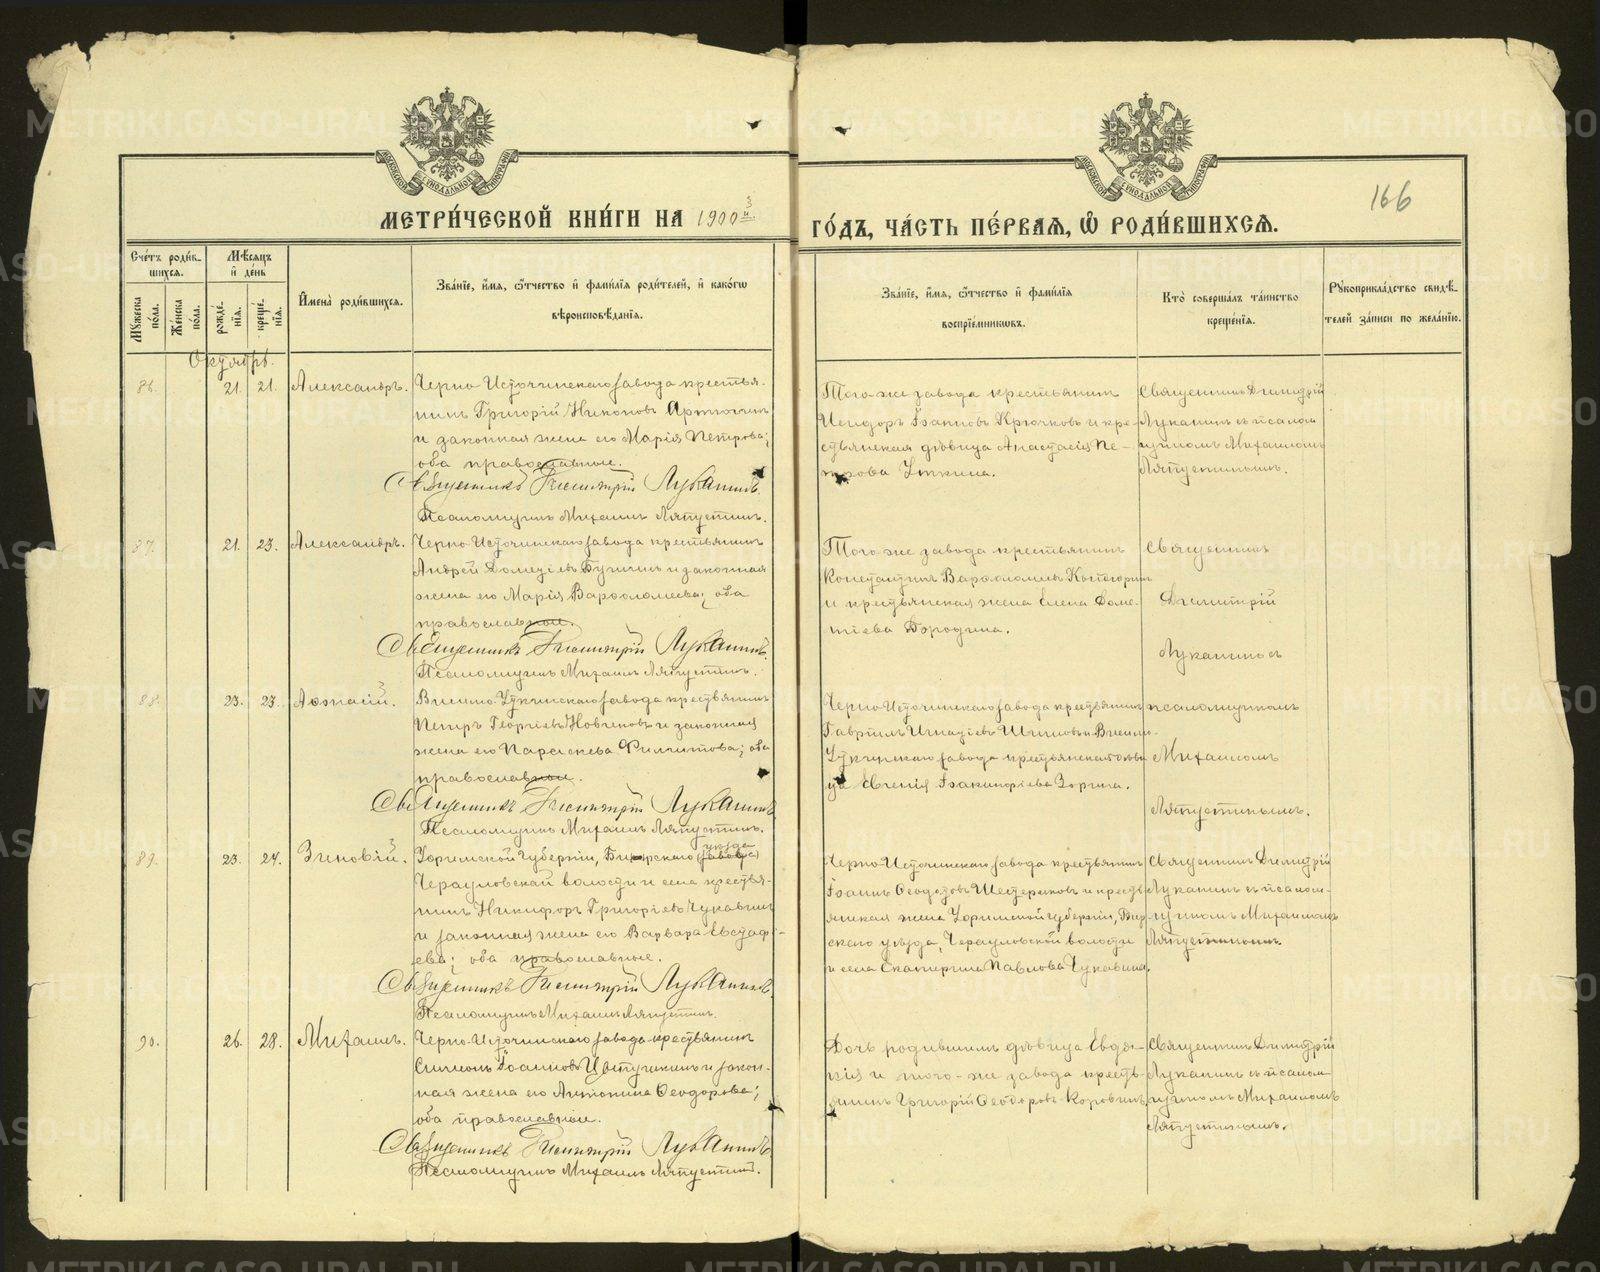 166
МЕТРИ́ЧЕСКОЙ КНИ́ГИ НА 1900 й 3 ГО́ДЪ, ЧА́СТЬ ПЕ́РВАЯ, Ѽ РОДИ́ВШИХСЯ.
Сче́тъ роди́в-
шихся.
Мѣсяцъ
и де́нь
Мꙋ́жеска по́ла.
Же́нска по́ла.
рожде́нїя.
креще́нїя.
И҆мена̀ роди́вшихся.
Зва́нїе, и҆́мя, ѻ҆́тчество и҆ фами́лїя роди́телей, и҆ како́гѡ
вѣроисповѣ́данїя.
Зва́нїе, и҆́мя, ѻ҆́тчество и҆ фами́лїя
воспрїе́мникѡвъ.
Кто̀ соверша́лъ та́инство
креще́нїя.
Рꙋкоприкла́дство свидѣ́-
телей за́писи по жела́нїю.
Октябрь.
86. 21. 21. Александръ.
Черно-Источинскаго завода крестья-
нинъ Григорій Никоновъ
и законная жена его Марія Петрова;
оба православные.
Священникъ Димитрій Луканинъ.
Псаломщикъ Михаилъ Ляпустинъ.
Того-же завода крестьянинъ
Исидоръ Іоанновъ Крючковъ и кре-
стьянская дѣвица Анастасія Пе-
трова Уткина.
Священникъ Димитрій
Луканинъ съ псалом-
щикомъ Михаиломъ
Ляпустинымъ.
87. 21. 23. Александръ.
Черно-Источинскаго завода крестьянинъ
Андрей и законная
жена его Марія Варфоломеева; оба
православные.
Священникъ Димитрій Луканинъ.
Псаломщикъ Михаилъ Ляпустинъ.
Того-же завода крестьянинъ
Константинъ Варфоломеевъ
и крестьянская жена Елена Доме-
тіева Бородина.
Священникъ
Димитрій
Луканинъ съ
88. 23. 23. Аѳанасій. 3
Висимо-Уткинскаго завода крестьянинъ
Петръ Георгіевъ и законная
жена его Параскева Филиппова; оба
православные.
Священникъ Димитрій Луканинъ
Псаломщикъ Михаилъ Ляпустинъ.
Черно-Источинскаго завода крестьянинъ
Гавріилъ Игнатіевъ Шишовъ и Висимо-
Уткинскаго завода крестьянская дѣви-
ца Евгенія Зорина.
псаломщикомъ
Михаиломъ
Ляпустинымъ.
89. 23. 24. Зиновій. 3
Уфимской губерніи, Бирскаго (завода) уѣзда
Черауловской волости и села крестья-
нинъ Никифоръ Григоріевъ Чукавинъ
и законная жена его Варвара Евстафі-
ева; оба православные.
Священникъ Димитрій Луканинъ.
Псаломщикъ Михаилъ Ляпустинъ.
Черно-Источинскаго завода крестьянинъ
Іоаннъ Ѳеодотовъ Шестериковъ и кресть-
янская жена Уфимской губерніи, Бир-
скаго уѣзда, Черауловской волости
и села Екатерина Павлова Чукавина.
Священникъ Димитрій
Луканинъ съ псалом-
щикомъ Михаиломъ
Ляпустинымъ.
90. 26. 28. Михаилъ.
Черно-Источинскаго завода крестьянинъ
Симеонъ Іоанновъ и закон-
ная жена его Антонина Ѳеодорова;
оба православные.
Священникъ Димитрій Луканинъ
Псаломщикъ Михаилъ Ляпустинъ.
Дочь родившимъ дѣвица Евдо-
кія и того-же завода кресть-
янинъ Григорій Ѳеодоровъ Коровинъ.
Священникъ Димитрій
Луканинъ съ псалом-
щикомъ Михаиломъ
Ляпустинымъ.